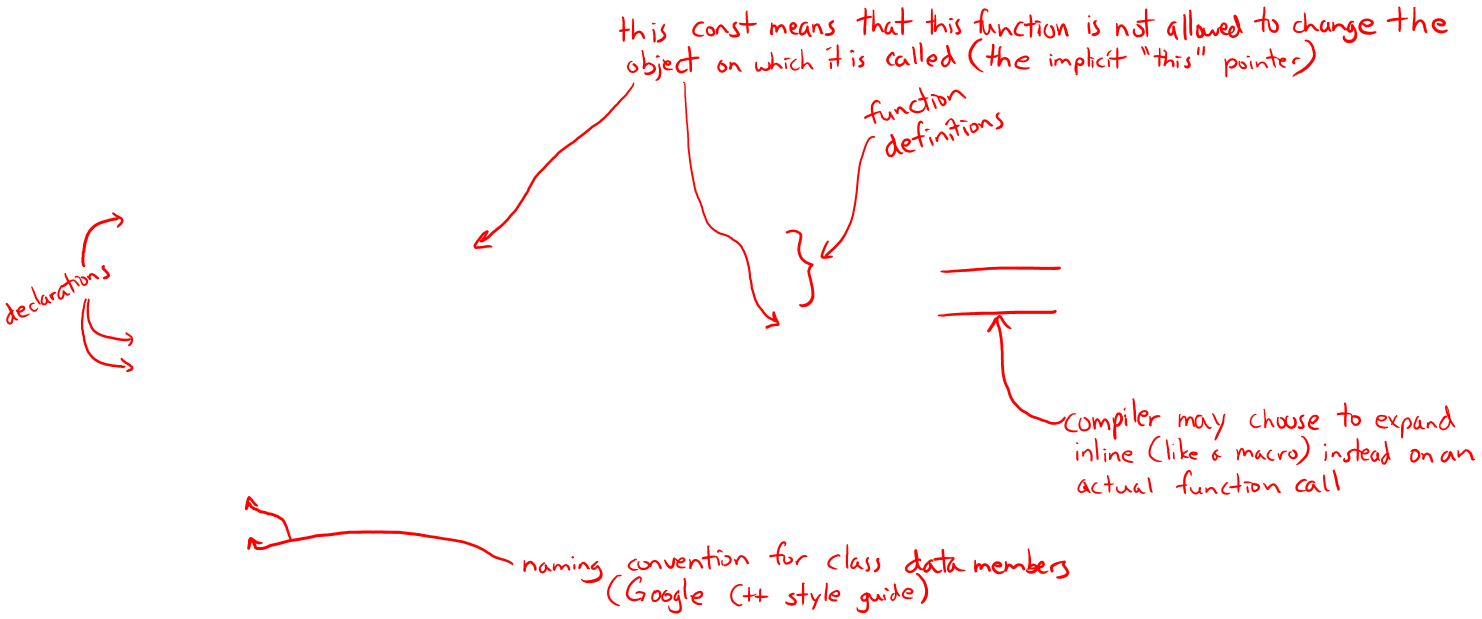 this const means that this function is not allowed to change the
object on which it is called (the implicit "this" pointer)
function
definitions
declarations
compiler may choose to expand
inline (like a macro) instead on an
actual function call
naming convention for class data members
(Google C++ style guide)